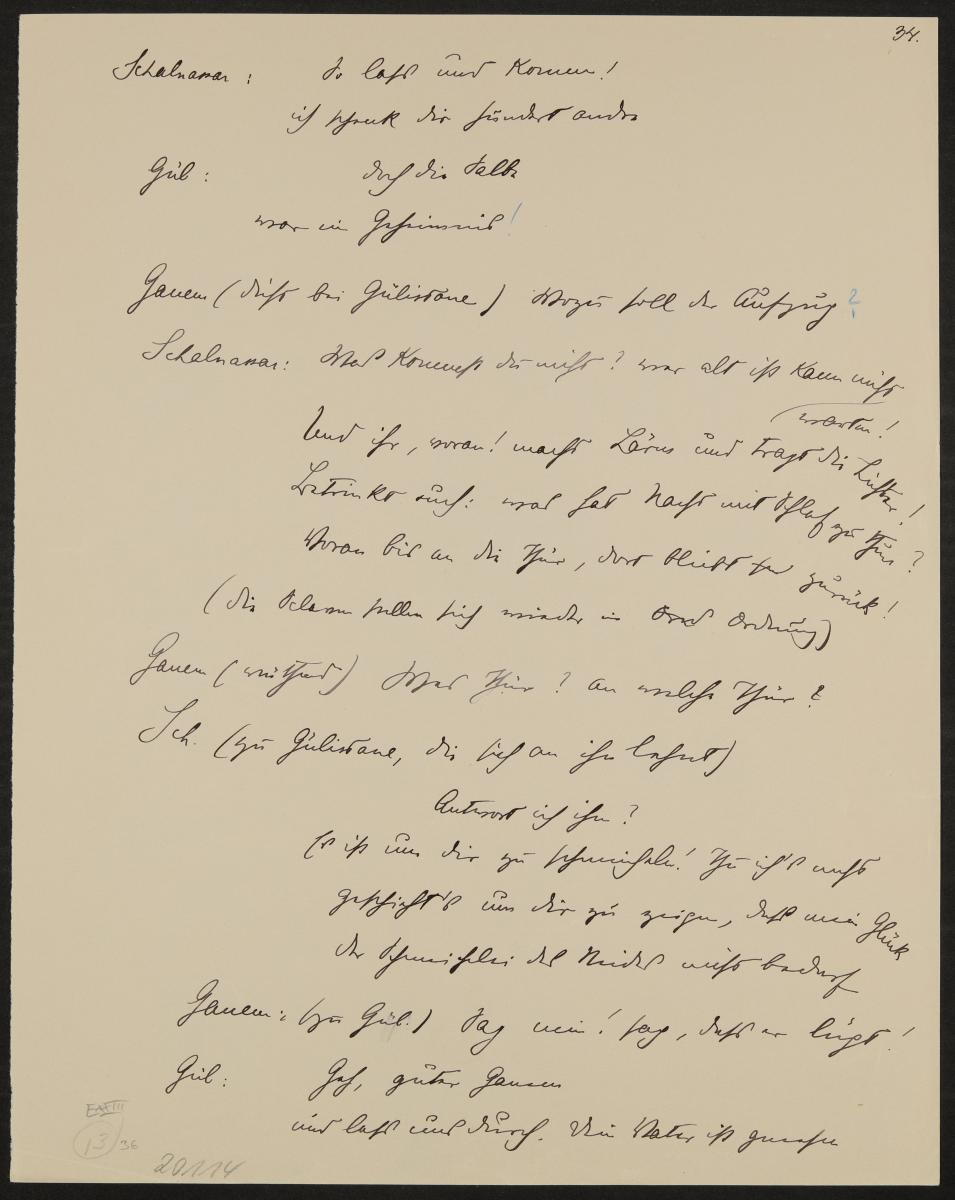 34.
Schalnassar: So lass uns kommen!
ich schenk dir hundert andre
Gül: doch die Salbe
war ein Geheimnis!
Ganem (dicht bei Gülistane) Wozu soll der Aufzug?
Schalnassar: Was kommst du nicht? wer alt ist kann nicht
warten!
Und ihr, voran! macht Lärm und tragt die Lichter!
Betrinkt euch: was hat Nacht mit Schlaf zu thun?
Voran bis an die Thür, dort bleibt zurück!
(die Sclaven stellen sich wieder in Ordnung)
Ganem (wüthend) Was Thür? an welche Thür?
Sch. (zu Gülistane, die sich an ihn lehnt)
Antwort ich ihm?
Es ist um dir zu schmeicheln! Thu ich's nicht
geschieht's um dir zu zeigen, dass mein Glück
der Schmeichelei des Neides nicht bedarf
Ganem: (zu Gül.) Sag nein! sag, dass er lügt!
Gül: Geh, guter Ganem
und lass uns durch. Dein Vater ist genesen
13 36
20114